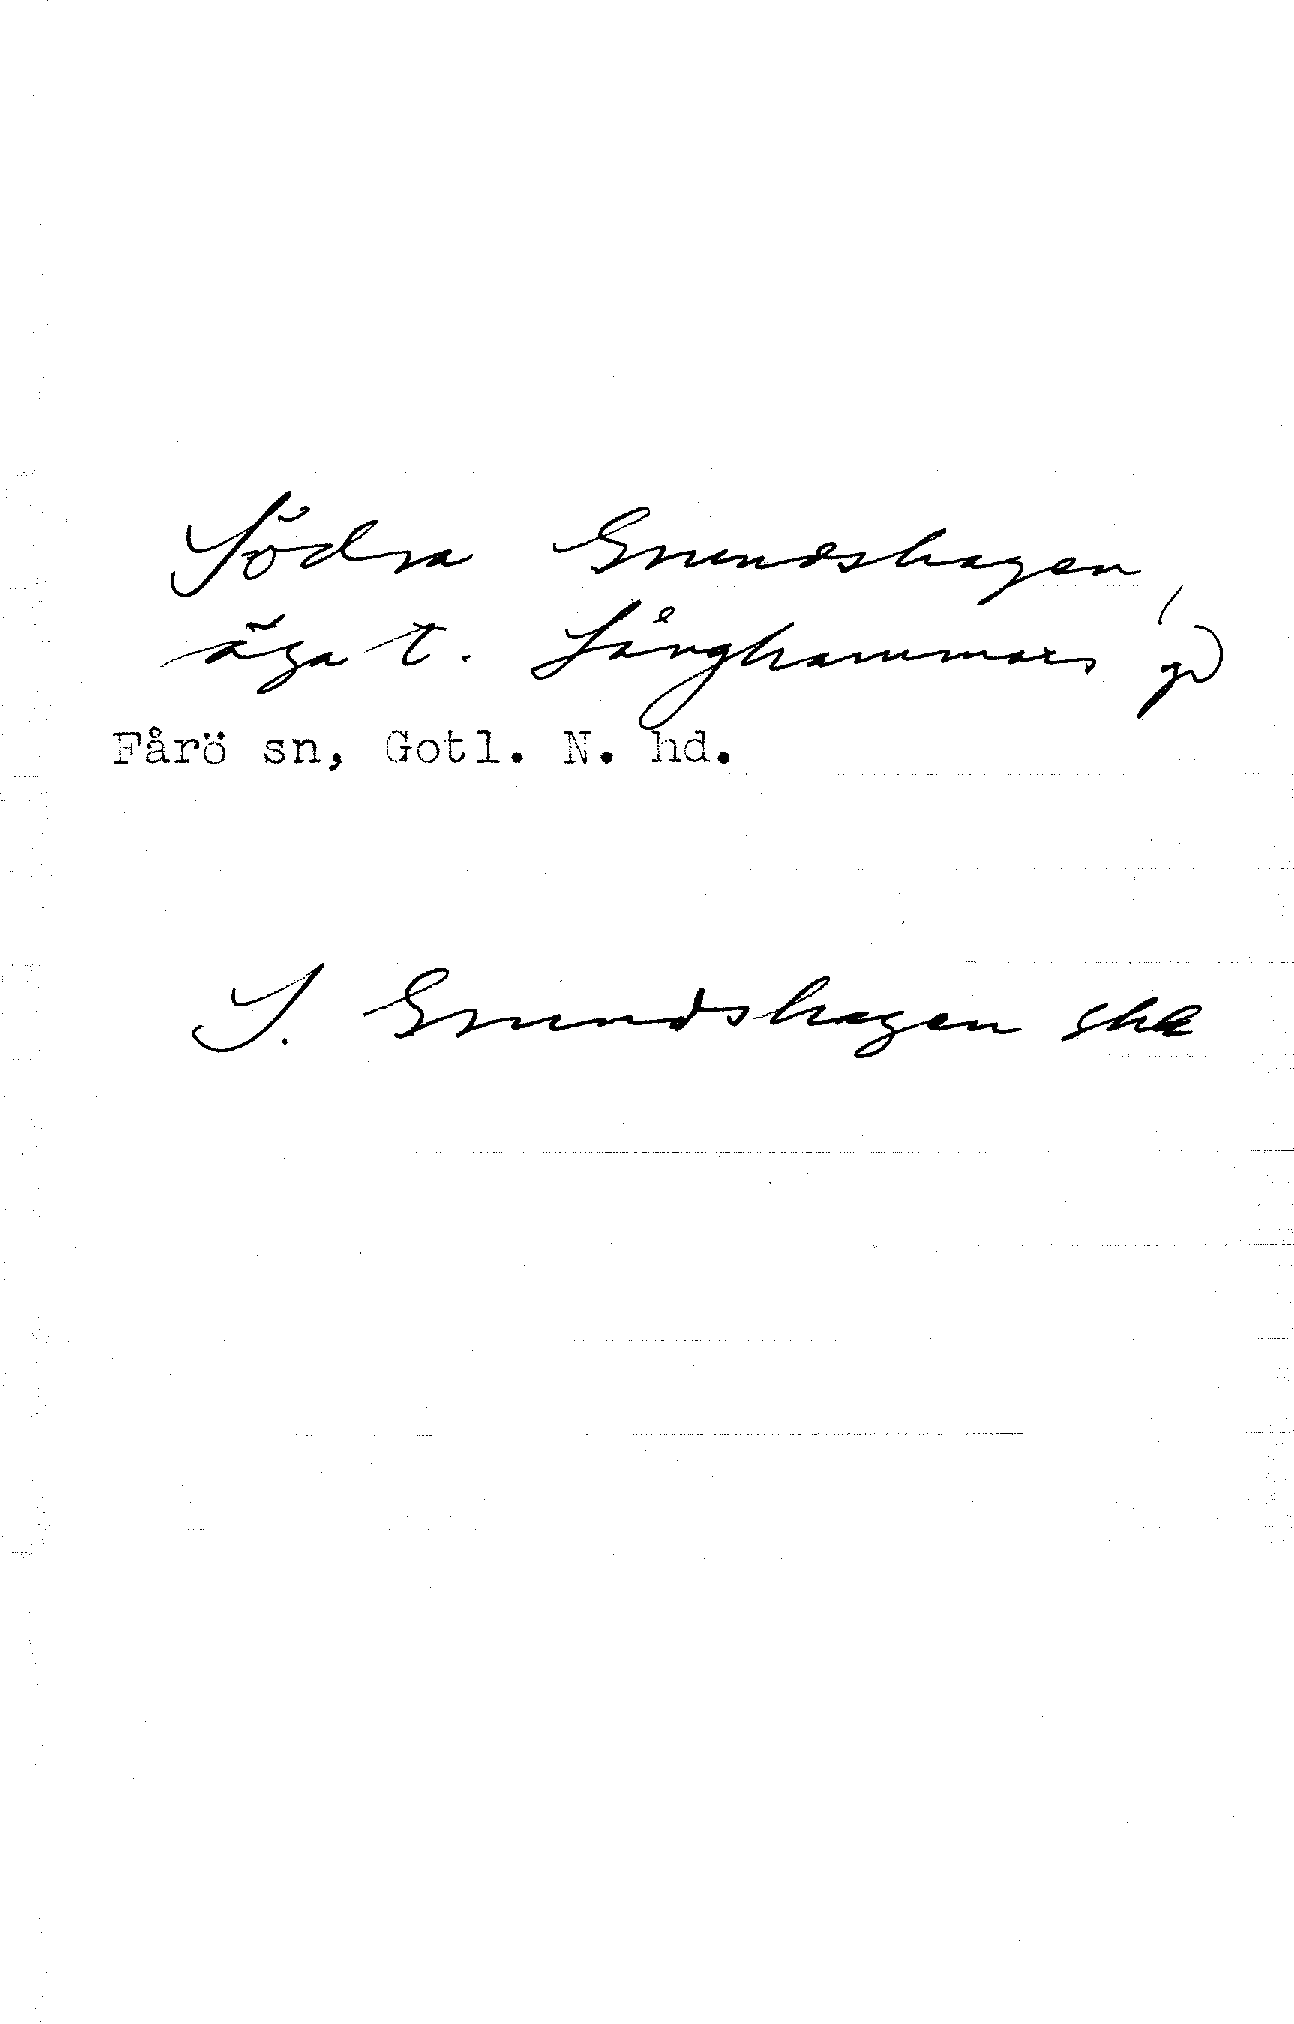 Södra Grundshagen,
äga t. Långhammars gd
Fårö sn, Gotl. N. hd.
S. Grundshagen shk